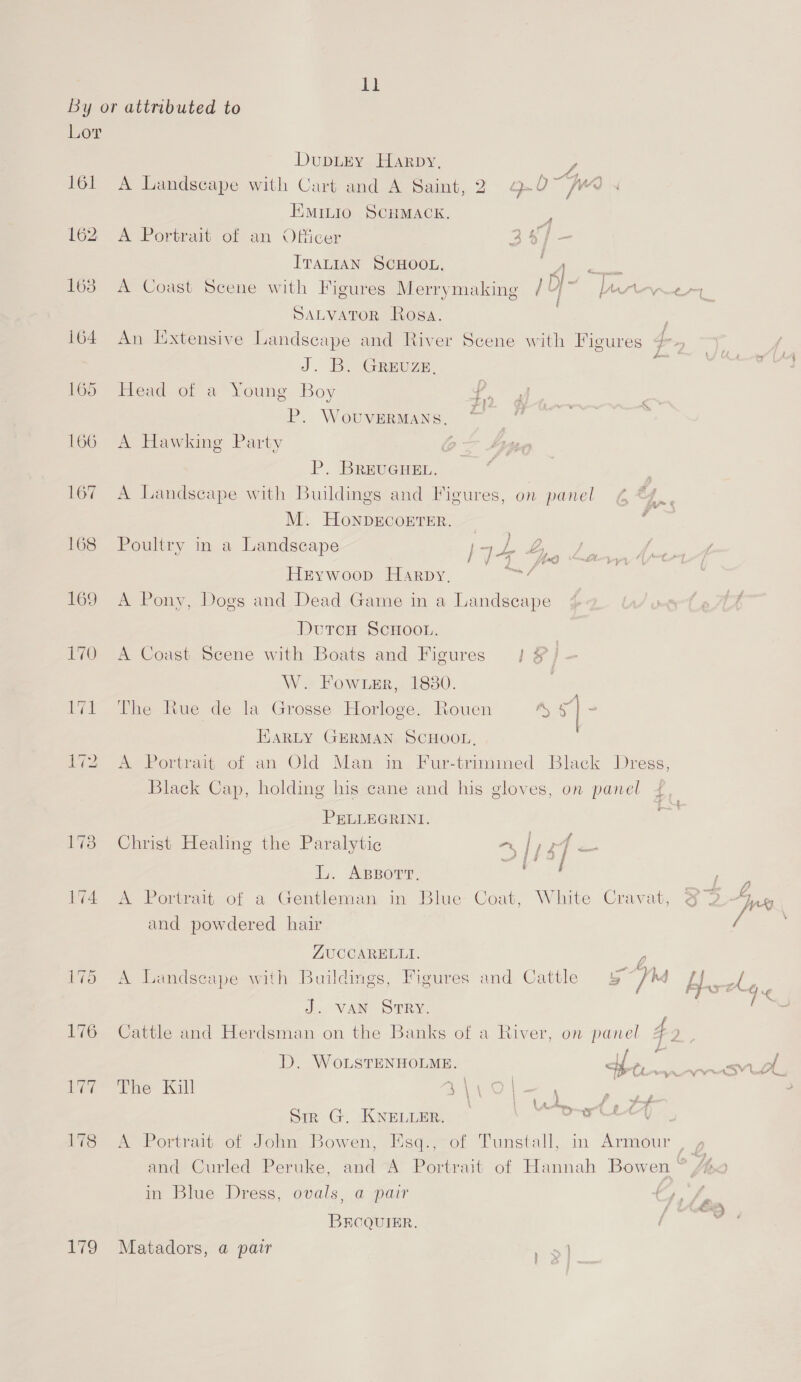 11
By or attributed to
Lot
Dudley Hardy.
161 A Landscape with Cart and A Saint, 2
Emilio Schmack.
162 A Portrait of an Officer
Italian School.
163 A Coast Scene with Figures Merrymaking
Salvator Rosa.
164 An Extensive Landscape and River Scene with Figures
J. B. Greuze.
165 Head of a Young Boy
P. Wouvermans.
166 A Hawking Party
P. Breughel.
167 A Landscape with Buildings and Figures, on panel
M. Hondecoeter.
168 Poultry in a Landscape
Heywood Hardy.
169 A Pony, Dogs and Dead Game in a Landscape
Dutch School.
170 A Coast Scene with Boats and Figures
W. Fowler, 1830.
171 The Rue de la Grosse Horloge. Rouen
Early German School.
172 A Portrait of an Old Man in Fur-trimmed Black Dress,
Black Cap, holding his cane and his gloves, on panel
Pellegrini.
173 Christ Healing the Paralytic
L. Abbott.
174 A Portrait of a Gentleman in Blue Coat, White Cravat,
and powdered hair
Zuccarelli.
175 A Landscape with Buildings, Figures and Cattle
J. van Stry.
176 Cattle and Herdsman on the Banks of a River, on panel
D. Wolstenholme.
177 The Kill
Sir G. Kneller.
178 A Portrait of John Bowen, Esq., of Tunstall, in Armour
and Curled Peruke, and A Portrait of Hannah Bowen
in Blue Dress, ovals, a pair
Becquier.
179 Matadors, a pair